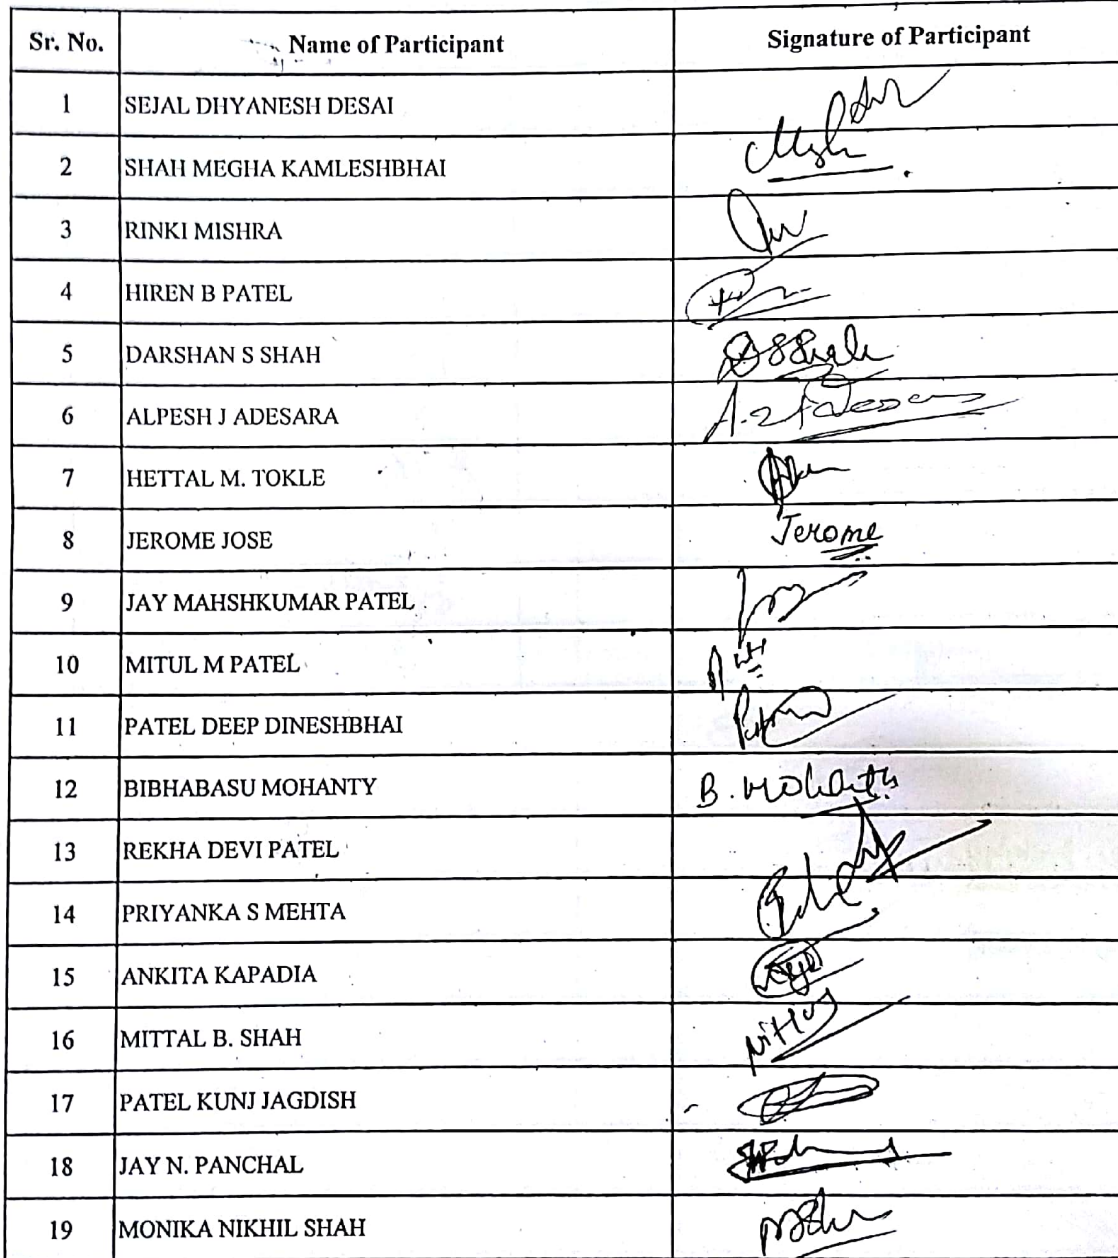 Sr. No. Name of Participant Signature of Participant
1 SEJAL DHYANESH DESAI
2 SHAH MEGHA KAMLESHBHAI
3 RINKI MISHRA
4 HIREN B PATEL
5 DARSHAN S SHAH
6 ALPESH J ADESARA
7 HETTAL M. TOKLE
8 JEROME JOSE Jerome
9 JAY MAHSHKUMAR PATEL
10 MITUL M PATEL
11 PATEL DEEP DINESHBHAI
12 BIBHABASU MOHANTY B. Mohanty
13 REKHA DEVI PATEL
14 PRIYANKA S MEHTA
15 ANKITA KAPADIA
16 MITTAL B. SHAH
17 PATEL KUNJ JAGDISH
18 JAY N. PANCHAL
19 MONIKA NIKHIL SHAH